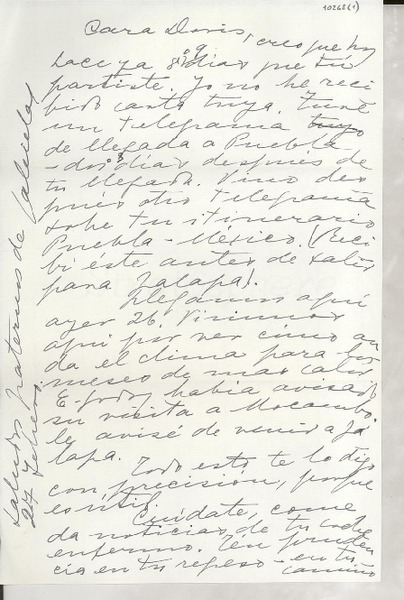 10268(1)
Cara Doris, creo que hoy
hace ya 8 o 9 días que tú
partiste. Yo no he reci
bido carta tuya. Tuve
un telegrama tuyo
de llegada a Puebla
- dos o 3 días después de
tu llegada. Vino des
pués otro telegrama
sobre tu itinerario
Puebla - México. (Reci
bí éste antes de salir
para Jalapa).
Llegamos aquí
ayer 26. Vinimos
aquí por ver cómo an
da el clima para los
meses de mas calor.
había avisado
su visita a Mocambo.
le avisé de venir a Ja
lapa.
Todo esto te lo digo
con precisión, porque
es útil.
Cuídate, come
da noticias de tu coche
enfermo. Ten pruden
cia en tu regreso - en tu
camino
Saludos fraternos de
27 Febrero